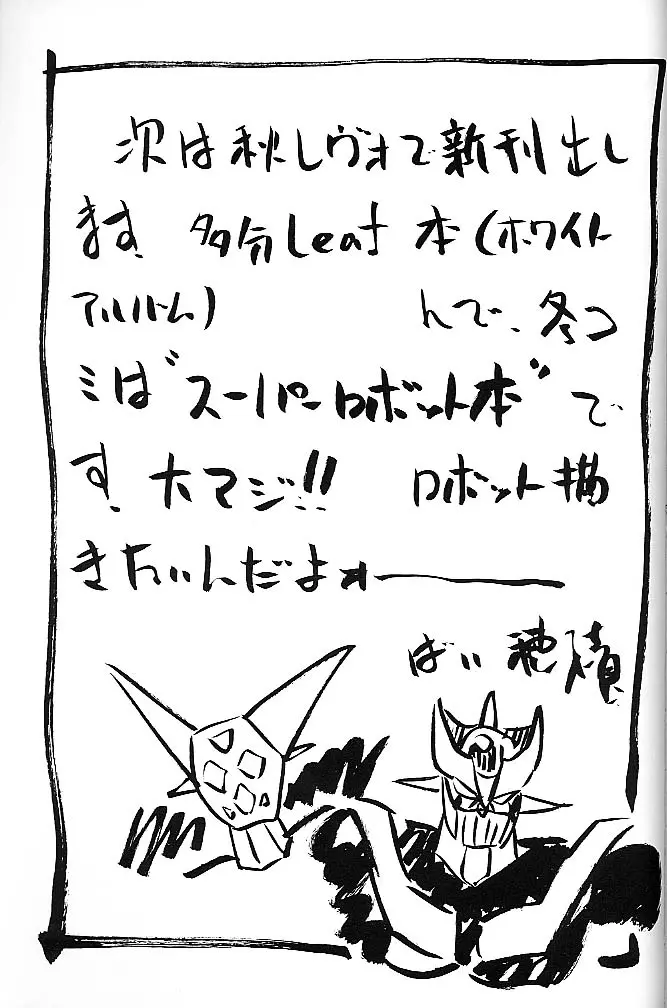 次は秋レヴォで新刊出し
ます。多分Leaf本(ホワイト
アルバム) んで、冬コ
ミは"スーパーロボット本"で
す。大マジ!! ロボット描
きたいんだよォ———
ばい 穂積